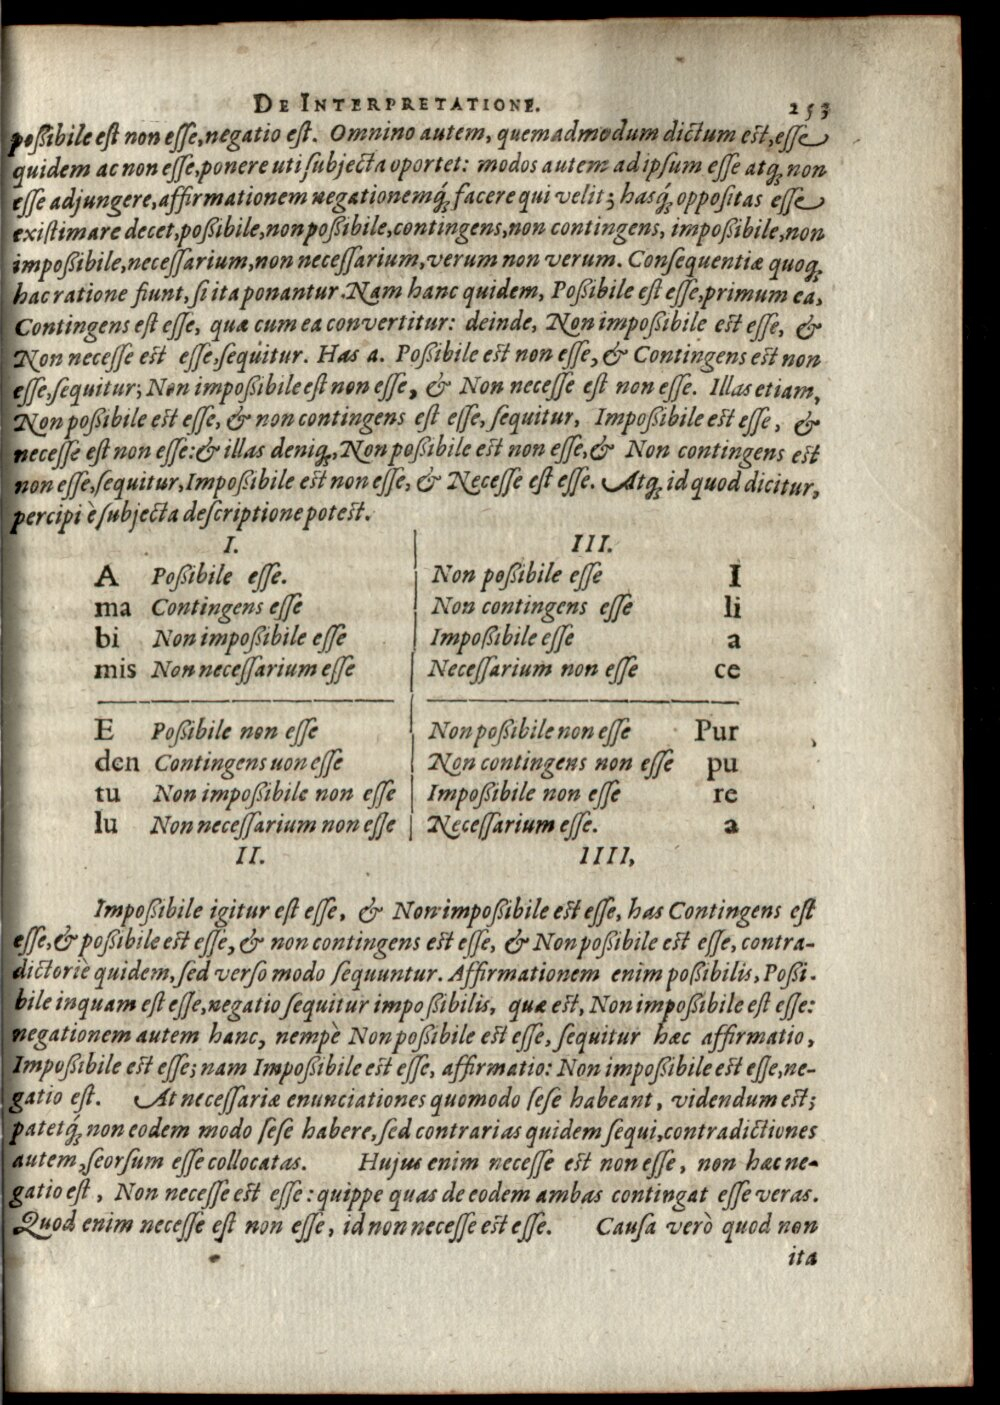 DE INTERPRETATIONE. 253
poßibile est non esse, negatio est. Omnino autem, quemadmodum dictum est, esse
quidem ac non esse, ponere uti subjecta oportet: modos autem ad ipsum esse atq; non
esse adjungere, affirmationem negationemq́; facere qui velit; hasq́; oppositas esse
existimare decet, poßibile, non poßibile, contingens, non contingens, impoßibile, non
impoßibile, necessarium, non necessarium, verum non verum. Consequentiæ quoq;
hac ratione fiunt, si ita ponantur. Nam hanc quidem, Poßibile est esse, primum ea,
Contingens est esse, quæ cum ea convertitur: deinde, Non impoßibile est esse, &
Non necesse est esse, sequitur. Has a. Poßibile est non esse, & Contingens est non
esse, sequitur; Non impoßibile est non esse, & Non necesse est non esse. Illas etiam,
Non poßibile est esse, & non contingens est esse, sequitur, Impoßibile est esse, &
necesse est non esse: & illas deniq;, Non poßibile est non esse, & Non contingens est
non esse, sequitur, Impoßibile est non esse, & Necesse est esse. Atq; id quod dicitur,
percipi è subjecta descriptione potest.
I. III.
A Poßibile esse. Non poßibile esse I
ma Contingens esse Non contingens esse li
bi Non impoßibile esse Impoßibile esse a
mis Non necessarium esse Necessarium non esse ce
E Poßibile non esse Non poßibile non esse Pur
den Contingens uon esse Non contingens non esse pu
tu Non impoßibile non esse Impoßibile non esse re
lu Non necessarium non esse Necessarium esse. a
II. IIII,
Impoßibile igitur est esse, & Non impoßibile est esse, has Contingens est
esse, & poßibile est esse, & non contingens est esse, & Non poßibile est esse, contra-
dictoriè quidem, sed verso modo sequuntur. Affirmationem enim poßibilis, Poßi-
bile inquam est esse, negatio sequitur impoßibilis, quæ est, Non impoßibile est esse:
negationem autem hanc, nempè Non poßibile est esse, sequitur hæc affirmatio,
Impoßibile est esse; nam Impoßibile est esse, affirmatio: Non impoßibile est esse, ne-
gatio est. At necessariæ enunciationes quomodo sese habeant, videndum est;
patetq́; non eodem modo sese habere, sed contrarias quidem sequi, contradictiones
autem, seorsum esse collocatas. Hujus enim necesse est non esse, non hæc ne-
gatio est, Non necesse est esse: quippe quas de eodem ambas contingat esse veras.
Quod enim necesse est non esse, id non necesse est esse. Causa verò quod non
ita